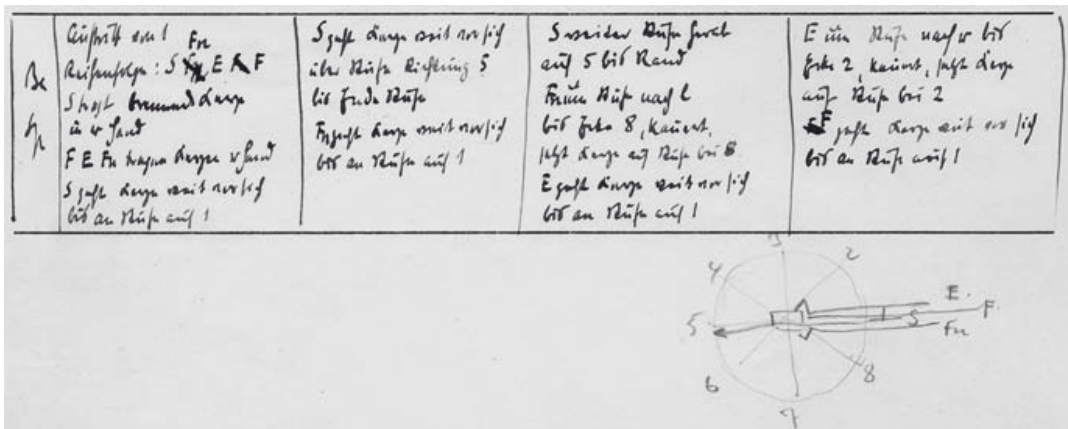 Auftritt von 1
Fn
Reihenfolge: S E F
S trägt brennend Kerze
in r Hand
F E Fn tragen Kerzen r Hand
S geht Kerze weit vor sich
bis an Stufe auf 1
S geht Kerze weit vor sich
über Stufe Richtung 5
bis Ende Stufe
Fn geht Kerze weit vor sich
bis an Stufe auf 1
S weiter Stufe herab
auf 5 bis Rand
Fn um Stufe nach l
bis Ecke 8, kauert,
setzt Kerze auf Stufe bei 8
E geht Kerze weit vor sich
bis an Stufe auf 1
E um Stufe nach r bis
Ecke 2, kauert, setzt Kerze
auf Stufe bei 2
F geht Kerze weit vor sich
bis an Stufe auf 1
3
2
4
E.
F.
S
5
Fn
8
6
7